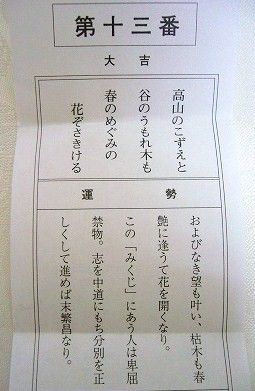 第十三番
大吉
高山のこずえと
谷のうもれ木も
春のめぐみの
花ぞさきける
運勢
およびなき望も叶い、枯木も春
艶に逢うて花を開くなり。
この「みくじ」にあう人は卑屈
禁物。志を中道にもち分別を正
しくして進めば末繁昌なり。